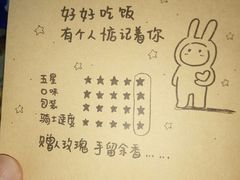 好好吃饭
有个人惦记着你
五星 ★★★★★
口味 ★★★★★
包装 ★★★★★
骑士速度 ★★★★★
赠人玫瑰 手留余香......